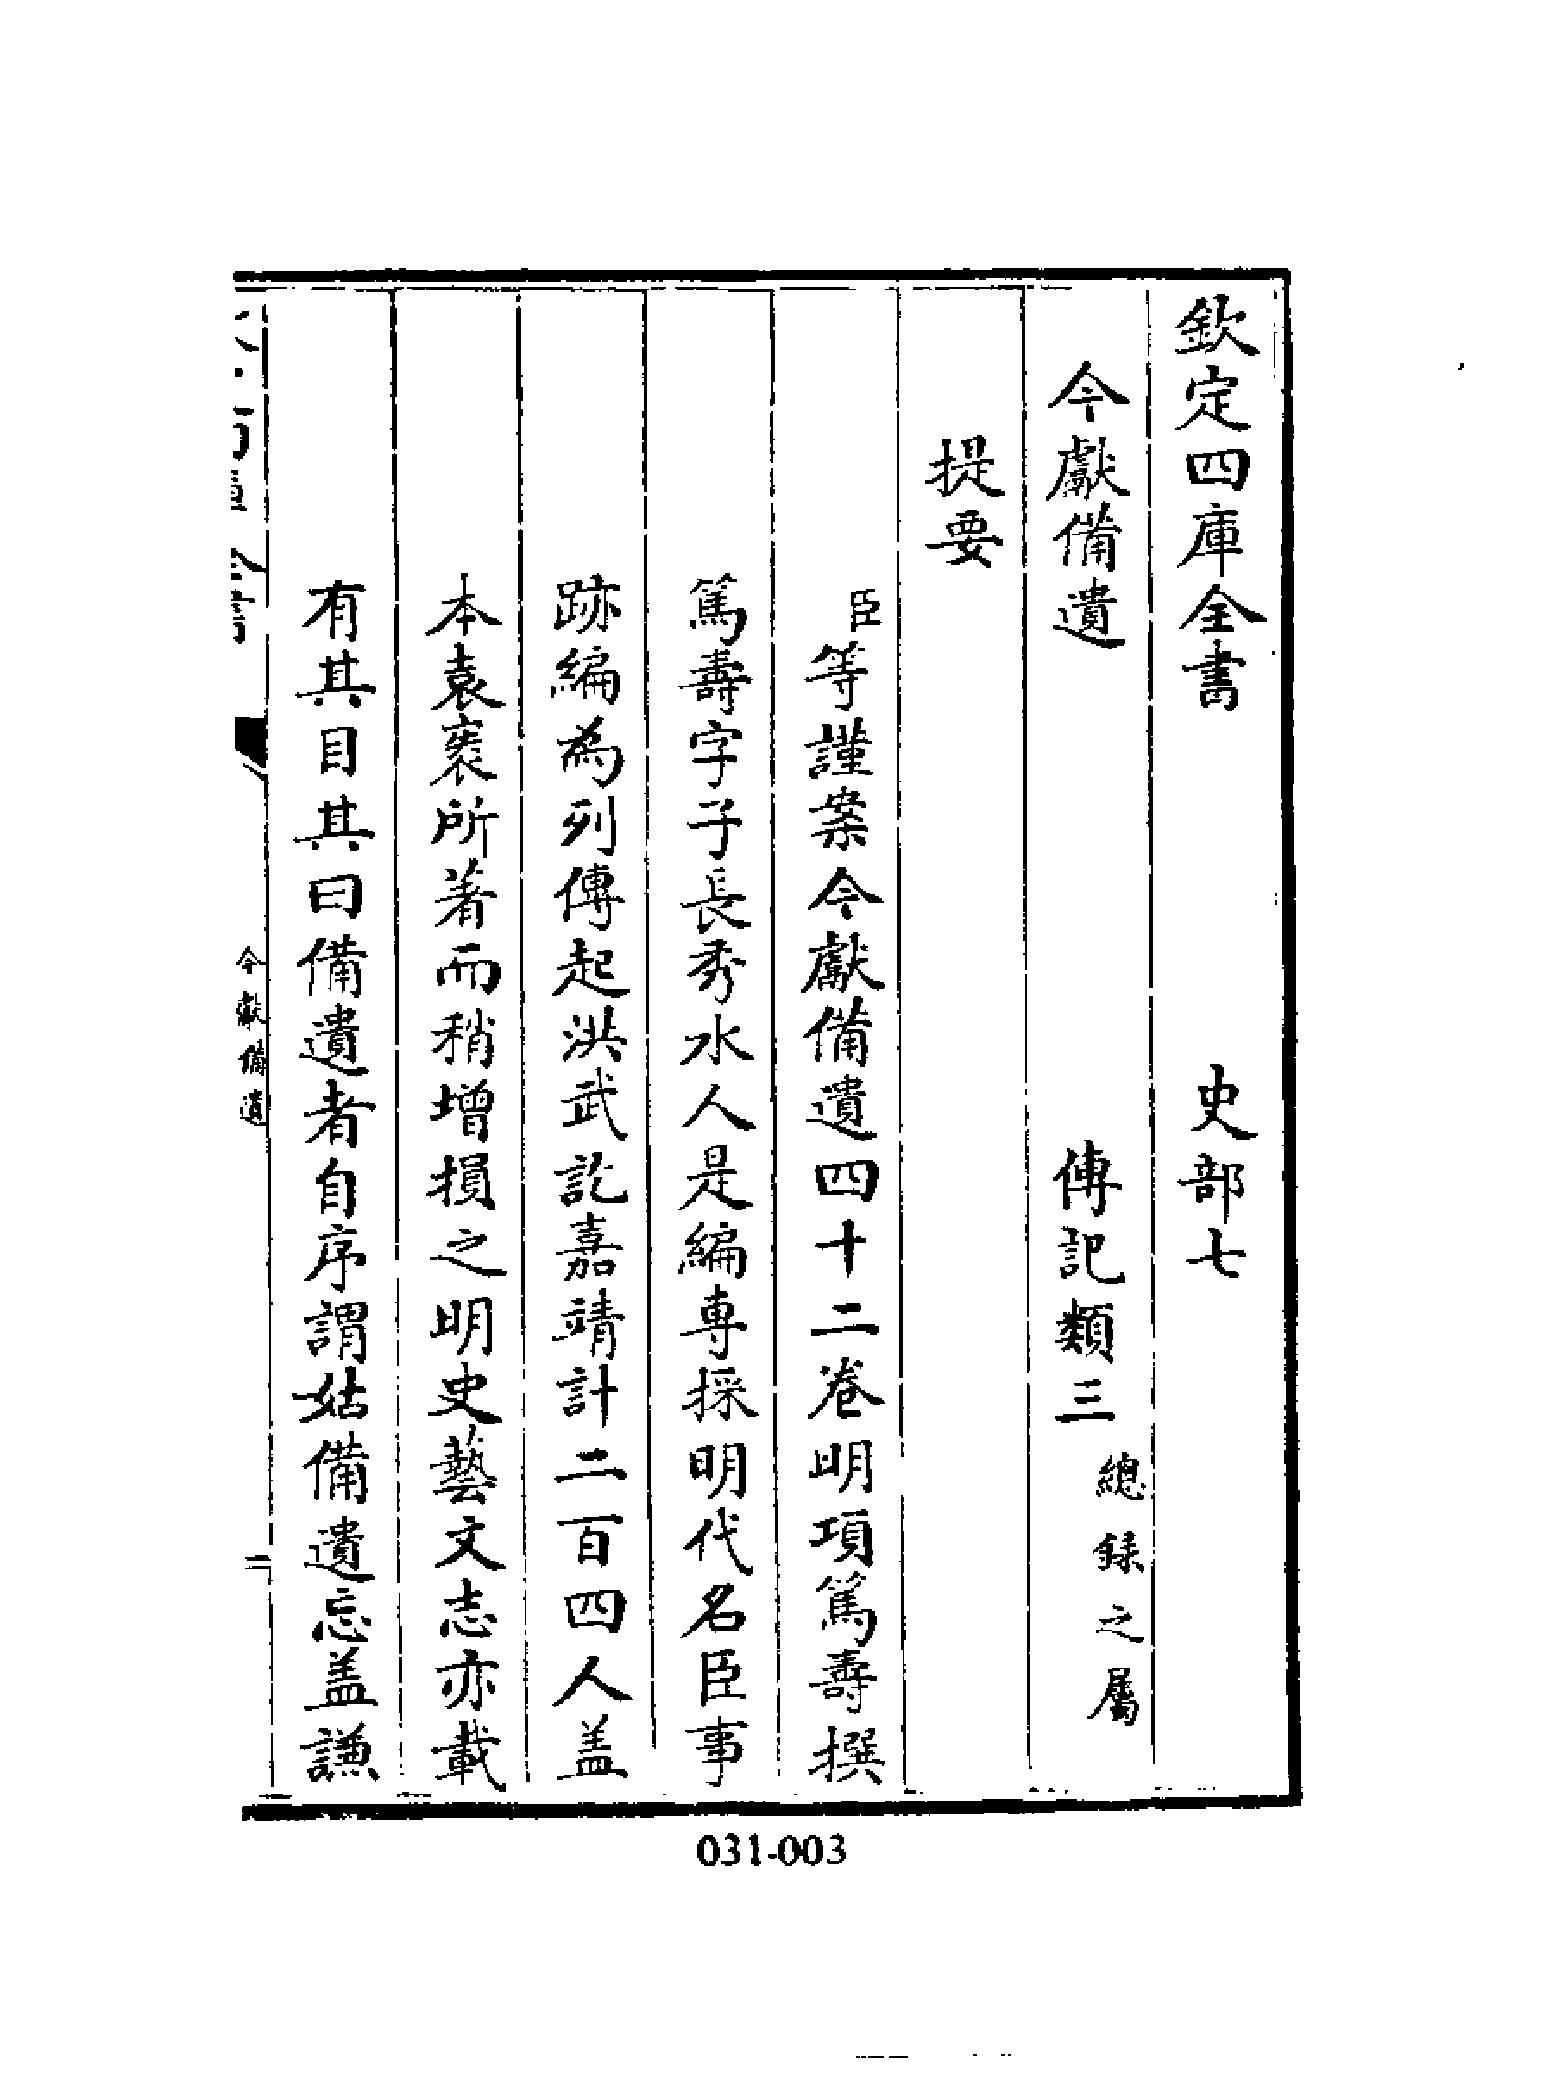 欽定四庫全書 史部七
今獻備遺 傳記類三 總錄之屬
提要
臣等謹案今獻備遺四十二卷明項篤壽撰
篤壽字子長秀水人是編専採明代名臣事
跡編為列傳起洪武訖嘉靖計二百四人盖
本袁袠所著而稍增損之明史藝文志亦載
有其目其曰備遺者自序謂姑備遺忘盖謙
今獻備遺
031-003